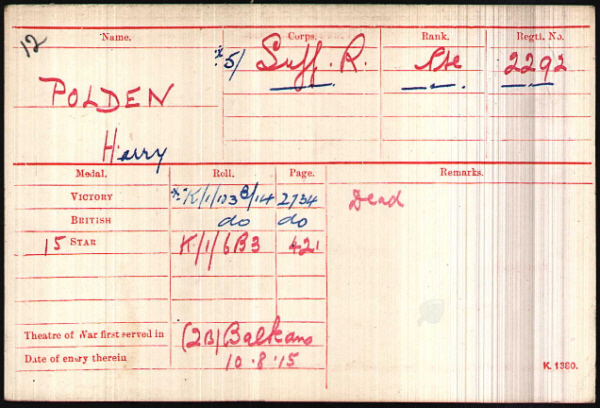 12
Name. Corps. Rank. Regtl. No.
5/ Suff. R. Pte 2292
POLDEN
Harry
Medal. Roll. Page. Remarks.
VICTORY K/1/103 B/14 2734 Dead
BRITISH do do
15 STAR K/1/6B3 421
Theatre of War first served in (2B) Balkans
Date of entry therein 10.8.15
K. 1380.